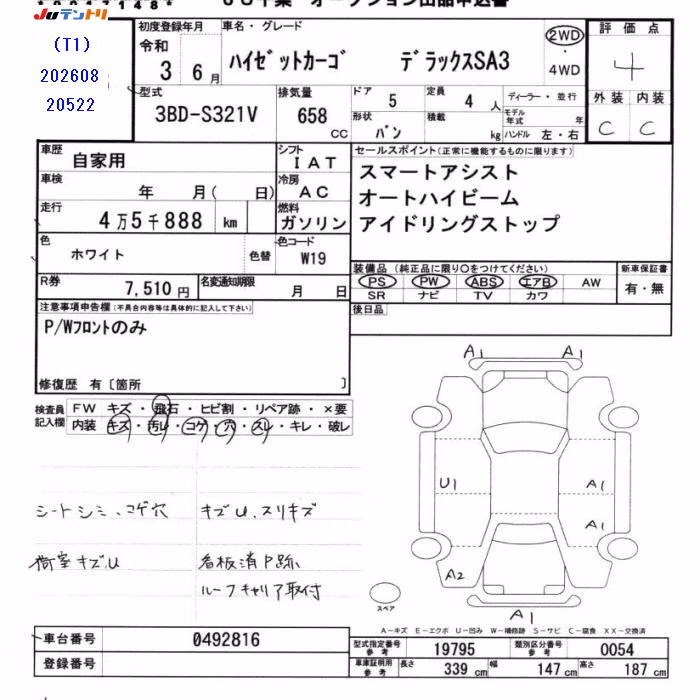 Juテントリ
(T1)
202608
20522
初度登録年月
令和
3 6月
車名・グレード
ハイゼットカーゴ デラックスSA3
2WD
・
4WD
評価点
4
外装 内装
C C
型式
3BD-S321V
排気量
658
CC
ドア
5
定員
4 人
形状
バン
積載
kg
ディーラー・並行
モデル年式 年
ハンドル 左・右
車歴
自家用
シフト
IAT
車検
年 月( 日)
冷房
AC
走行
4万5千888 km
燃料
ガソリン
色
ホワイト
色替
色コード
W19
R券
7,510円
名変通知期限
月 日
セールスポイント(正常に機能するものに限ります)
スマートアシスト
オートハイビーム
アイドリングストップ
装備品 (純正品に限り〇をつけてください)
新車保証書
PS PW ABS エアB AW
SR ナビ TV カワ
有・無
後日品
注意事項申告欄(不具合内容等は具体的に記入して下さい)
P/Wフロントのみ
修復歴 有〔箇所 〕
検査員
記入欄
FW キズ・飛石・ヒビ割・リペア跡・×要
内装・キズ・汚レ・コゲ・穴・スレ・キレ・破レ
シートシミ、コゲ穴
キズU、スリキズ
荷室キズU
看板消P跡
ルーフキャリア取付
A1 A1
U1 A1
A1
A2
A1
スペア
A-キズ E-エクボ U-凹み W-補修跡 S-サビ C-腐食 XX-交換済
車台番号 0492816
登録番号
型式指定番号 参考 19795
類別区分番号 参考 0054
車庫証明用 参考 長さ 339 cm 幅 147 cm 高さ 187 cm